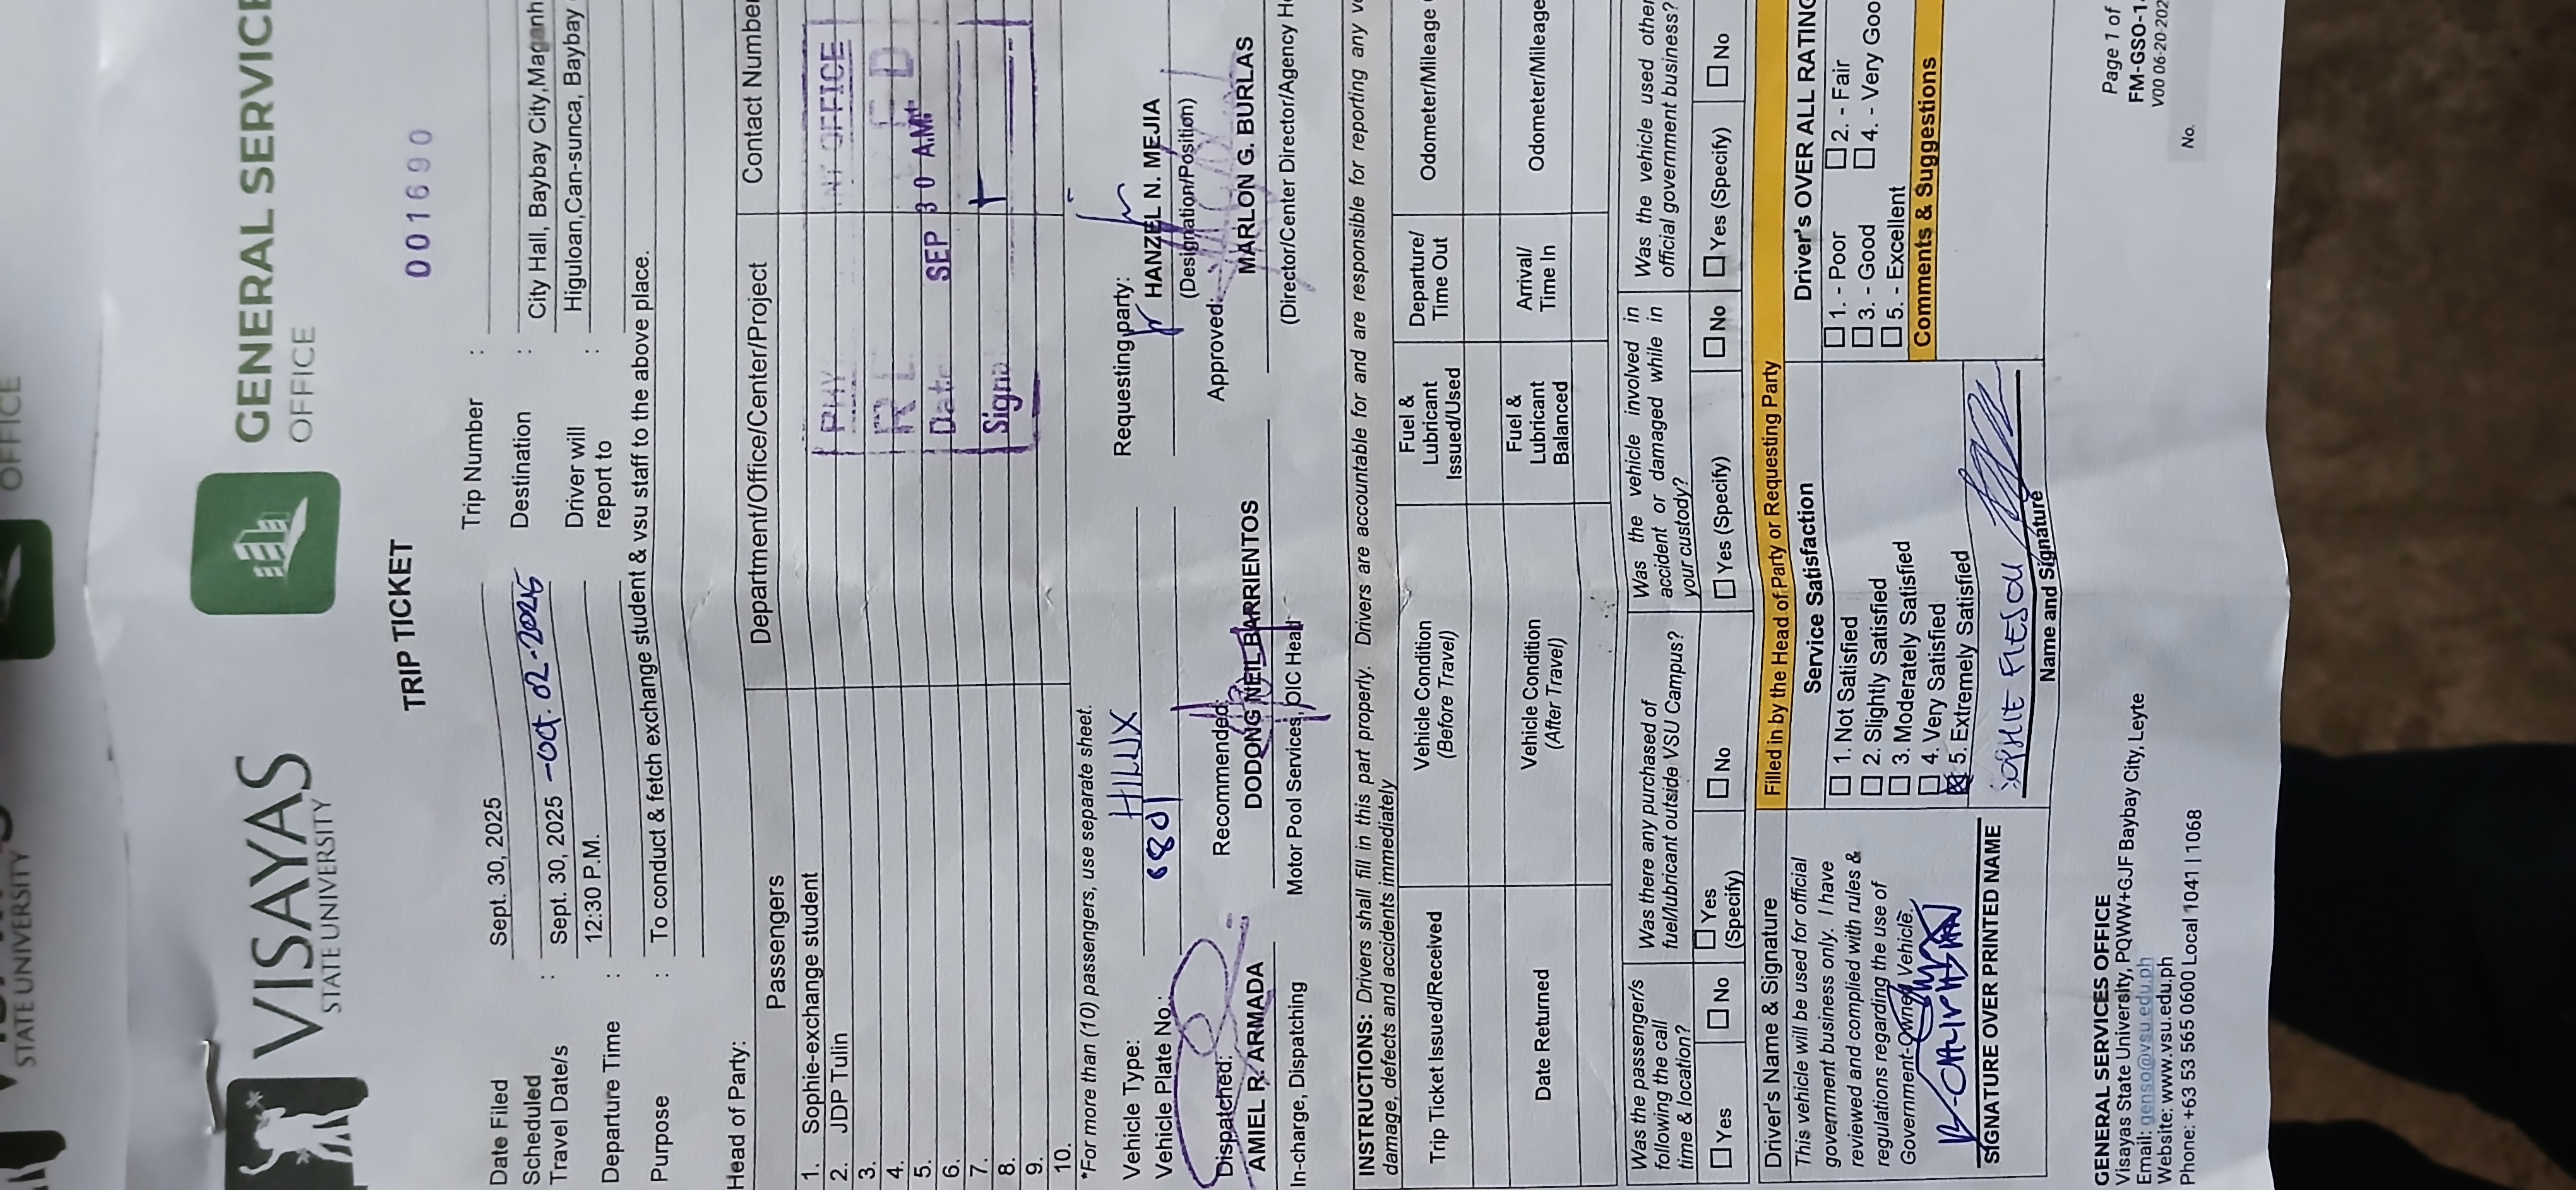 OFFICE
STATE UNIVERSITY
VISAYAS
STATE UNIVERSITY
GENERAL SERVICE
OFFICE
001690
TRIP TICKET
Date Filed
Sept. 30, 2025
Trip Number :
Scheduled
Travel Date/s : Sept. 30, 2025 -Oct. 02-2025
Destination : City Hall, Baybay City,Maganh
Departure Time : 12:30 P.M.
Driver will
report to : Higuloan,Can-sunca, Baybay
Purpose : To conduct & fetch exchange student & vsu staff to the above place.
Head of Party:
Passengers Department/Office/Center/Project Contact Number
1. Sophie-exchange student
2. JDP Tulin
3.
4.
5.
6.
7.
8.
9.
10.
OFFICE
Date SEP 30 AM
Signa
*For more than (10) passengers, use separate sheet.
Vehicle Type: HILUX
Vehicle Plate No.:
Requesting party:
HANZEL N. MEJIA
(Designation/Position)
Dispatched:
AMIEL R. ARMADA
In-charge, Dispatching
Recommended:
DODONG NEIL BARRIENTOS
Motor Pool Services, OIC Head
Approved:
MARLON G. BURLAS
(Director/Center Director/Agency H
INSTRUCTIONS: Drivers shall fill in this part properly. Drivers are accountable for and are responsible for reporting any v
damage, defects and accidents immediately
Trip Ticket Issued/Received
Vehicle Condition
(Before Travel)
Fuel &
Lubricant
Issued/Used
Departure/
Time Out
Odometer/Mileage
Date Returned
Vehicle Condition
(After Travel)
Fuel &
Lubricant
Balanced
Arrival/
Time In
Odometer/Mileage
Was the passenger/s
following the call
time & location?
Was there any purchased of
fuel/lubricant outside VSU Campus?
Was the vehicle involved in
accident or damaged while in
your custody?
Was the vehicle used other
official government business?
Yes No
Yes
(Specify) No
Yes (Specify) No
Yes (Specify) No
Driver's Name & Signature
This vehicle will be used for official
government business only. I have
reviewed and complied with rules &
regulations regarding the use of
Government-Owned Vehicle.
SIGNATURE OVER PRINTED NAME
Filled in by the Head of Party or Requesting Party
Service Satisfaction
1. Not Satisfied
2. Slightly Satisfied
3. Moderately Satisfied
4. Very Satisfied
5. Extremely Satisfied
Name and Signature
Driver's OVER ALL RATING
1. - Poor 2. - Fair
3. - Good 4. - Very Goo
5. - Excellent
Comments & Suggestions
GENERAL SERVICES OFFICE
Visayas State University, PQWW+GJF Baybay City, Leyte
Email: genso@vsu.edu.ph
Website: www.vsu.edu.ph
Phone: +63 53 565 0600 Local 1041 | 1068
Page 1 of
FM-GSO-1
V00 06-20-202
No.